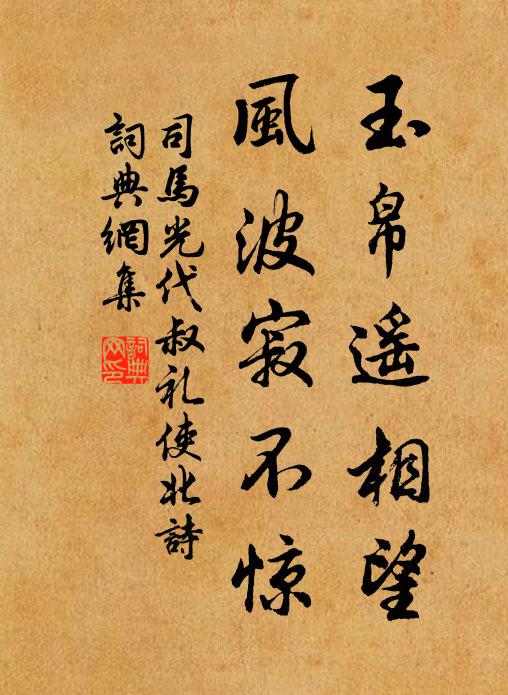 玉帛遥相望
風波寂不惊
司馬光代叔礼使北詩
詞典網集
詞典網印